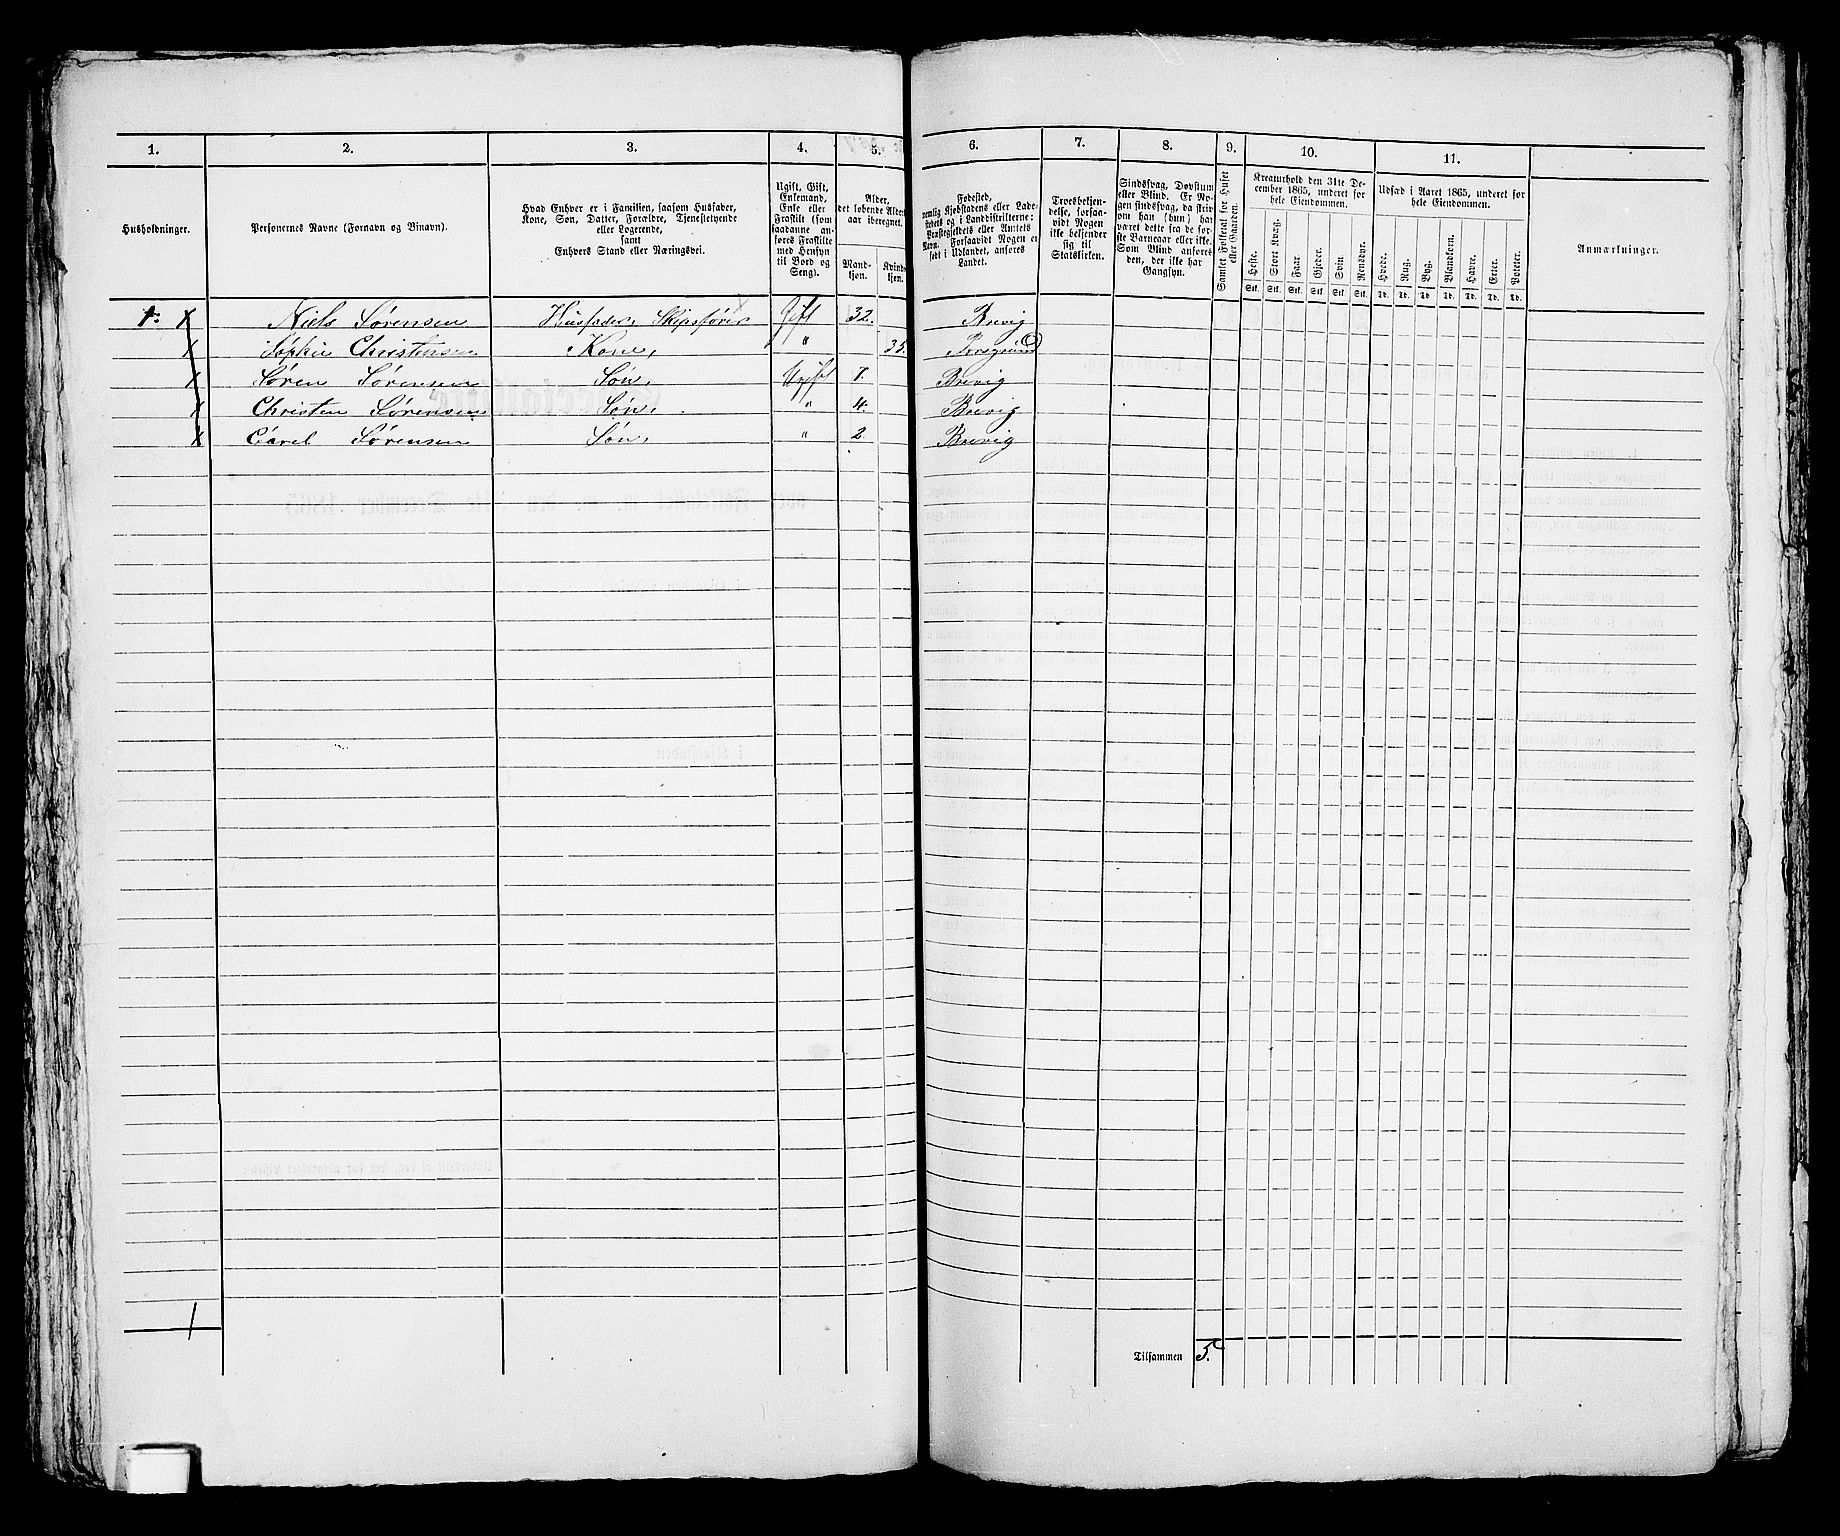 1. 2. 3. 4. 5. 6. 7. 8. 9. 10. 11.
Husholdninger.
Personernes Navne (Fornavn og Binavn).
Hvad Enhver er i Familien, saasom Husfader,
Kone, Søn, Datter, Forældre, Tjenestetyende
eller Logerende,
samt
Enhvers Stand eller Næringsvei.
Ugift, Gift,
Enkemand,
Enke eller
Fraskilt (som
saadanne an-
føres Fraskilte
med Hensyn
til Bord og
Seng).
Alder,
det løbende Alders-
aar iberegnet.
Mand-
kjøn.
Kvind-
kjøn.
Fødested,
nemlig Kjøbstadens eller Lade-
stedets og i Landdistrikterne:
Præstegjeldets eller Amtets
Navn. Forsaavidt Nogen er
født i Udlandet, anføres
Landet.
Troesbekjen-
delse, forsaa-
vidt Nogen
ikke bekjender
sig til
Statskirken.
Sindssvag, Døvstum
eller Blind. Er No-
gen sindssvag, da skrives
om han (hun) har
været dette fra de før-
ste Barneaar eller ikke.
Som Blind anføres
den, der ikke har
Gangsyn.
Samlet Folketal for Huset
eller Gaarden.
Kreaturhold den 31te De-
cember 1865, underet for
hele Eiendommen.
Heste. Stort Kvæg. Faar. Gjeder. Svin. Rensdyr.
Stk. Stk. Stk. Stk. Stk. Stk.
Udsæd i Aaret 1865, underet for
hele Eiendommen.
Hvede. Rug. Byg. Blandkorn. Havre. Erter. Poteter.
Td. Td. Td. Td. Td. Td. Td.
Anmærkninger.
1. x Niels Sørensen Husfader, Skipsfører Gift 32. Brevig
x Sophie Christensen Kone, " 35. Porsgrund
x Søren Sørensen Søn, Ugift 7. Brevig
x Christen Sørensen Søn, " 4. Brevig
x Carel Sørensen Søn, " 2. Brevig
1
Tilsammen 5.